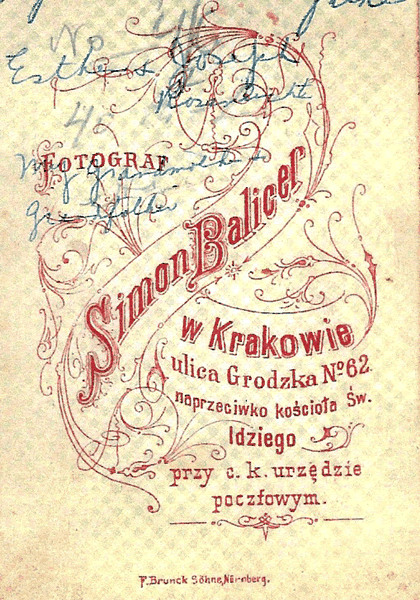 No
Esther & Joseph
Rosenlicht
4
FOTOGRAF
My Grandmother &
Grandfather
Simon Balicer
w Krakowie
ulica Grodzka No 62
naprzeciwko kościoła Św.
Idziego
przy c. k. urzędzie
pocztowym.
F. Brunck Söhne, Nürnberg.